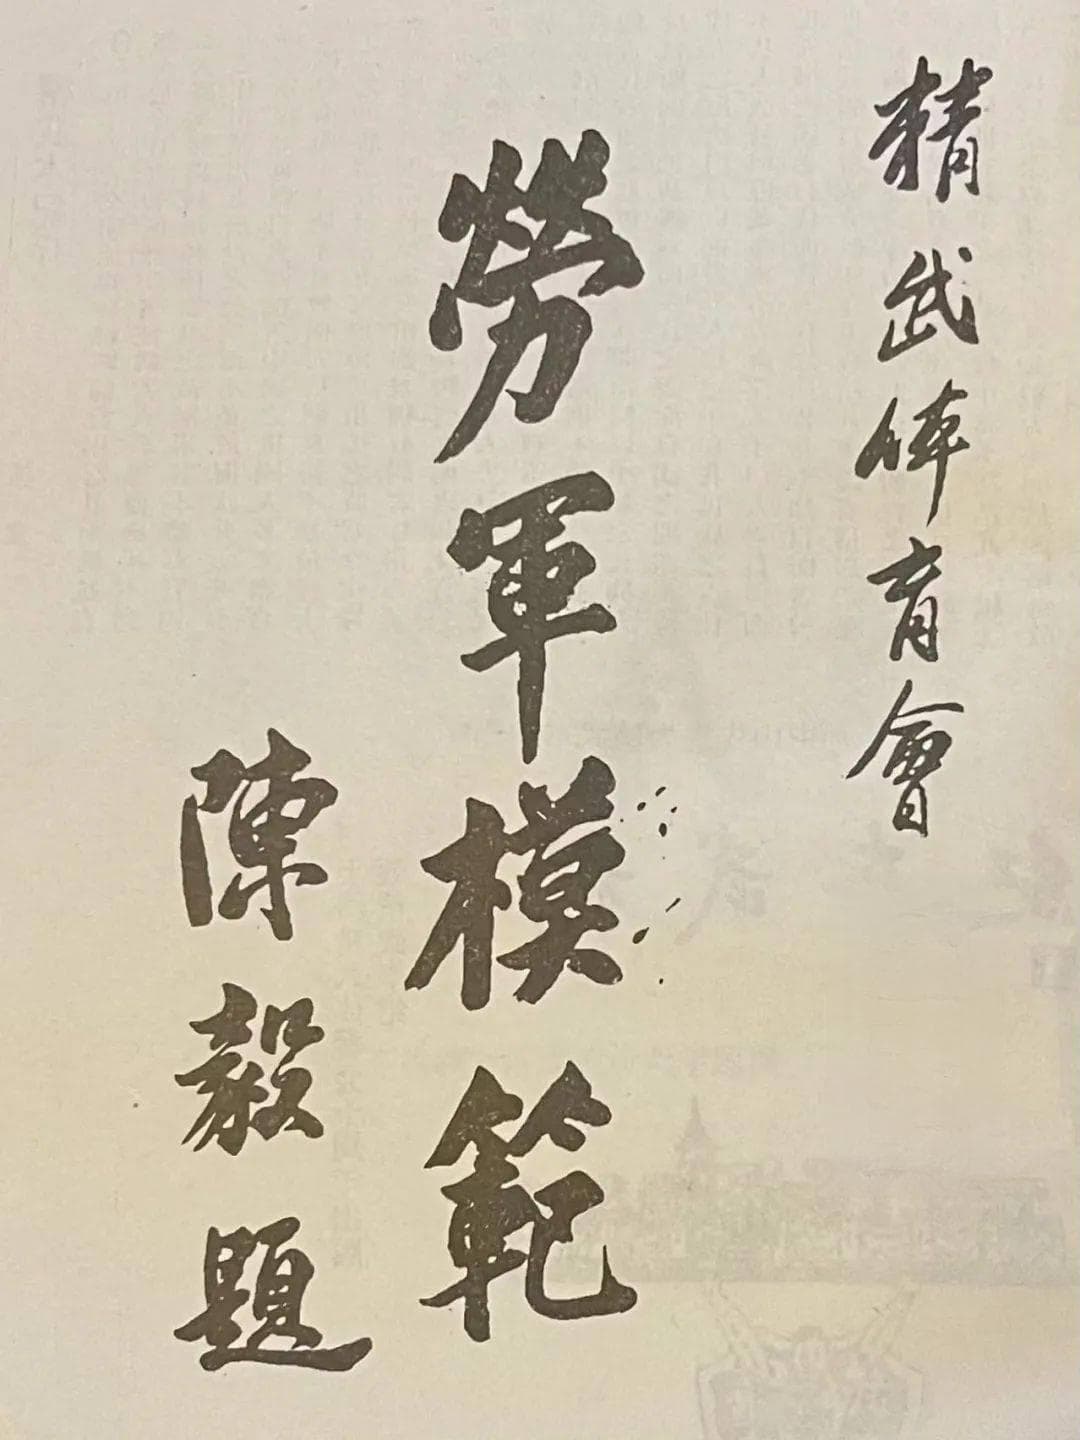 精武体育會
勞軍模範
陳毅題